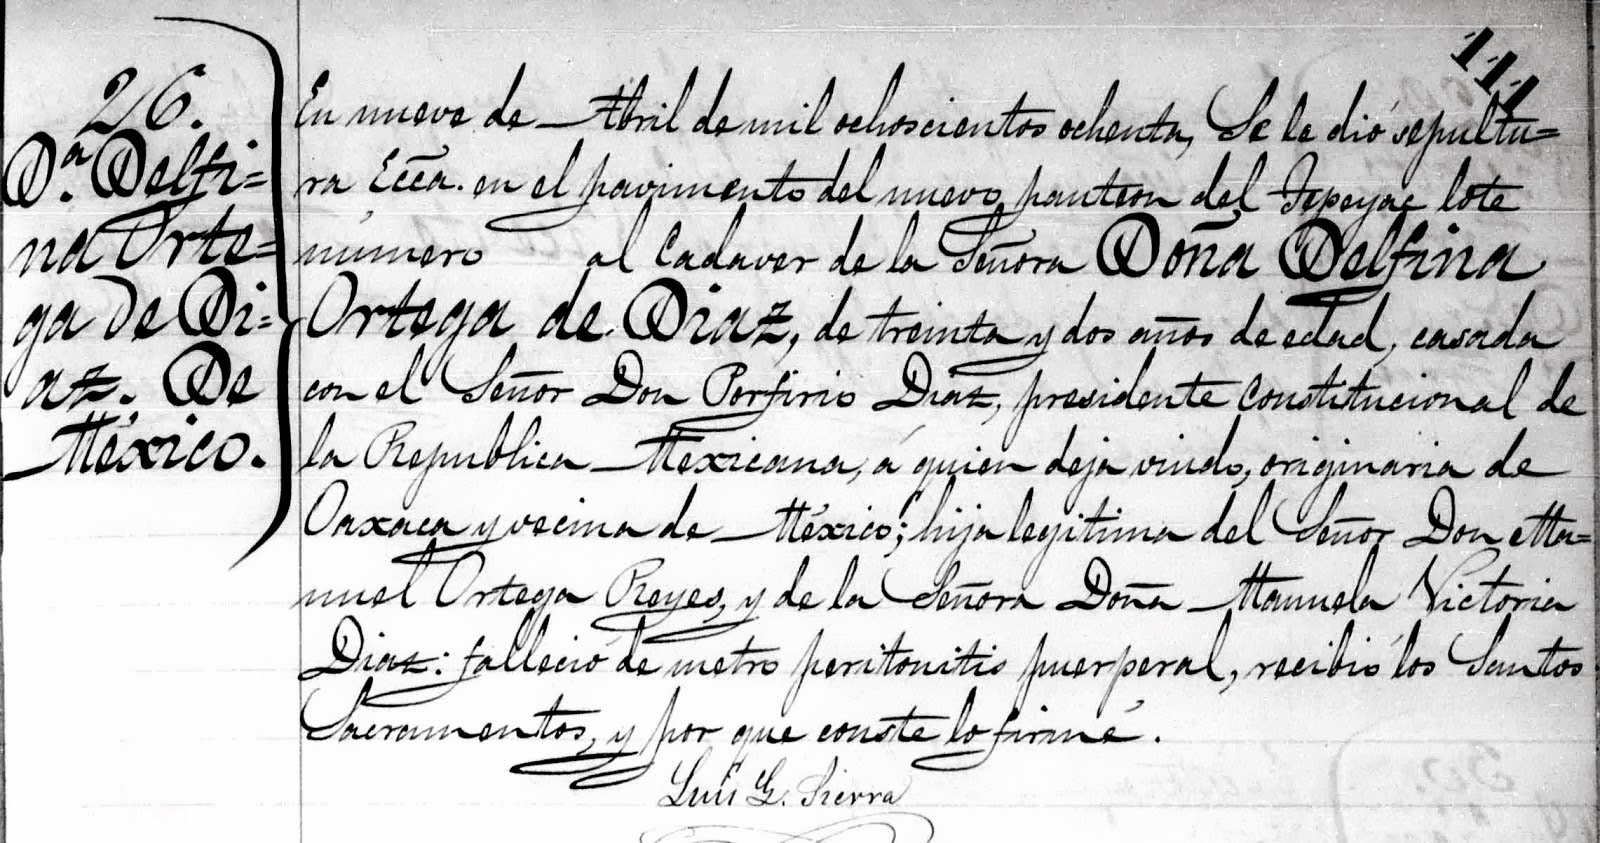 111
26.
Dª. Delfi=
na Orte=
ga de Di=
az. De
México.
En nueve de Abril de mil ochoscientos ochenta, Se le dió sepultu=
ra Ecca. en el pavimento del nuevo panteon del Tepeyac lote
número al Cadaver de la Señora Doña Delfina
Ortega de Diaz, de treinta y dos años de edad, casada
con el Señor Don Porfirio Diaz, presidente Constitucional de
la Republica Mexicana, á quien deja viudo, originaria de
Oaxaca y vecina de México; hija legitima del Señor Don Ma=
nuel Ortega Reyes, y de la Señora Doña Manuela Victoria
Diaz: falleció de metro peritonitis puerperal, recibió los Santos
Sacramentos, y por que conste lo firmé.
Luis G. Sierra